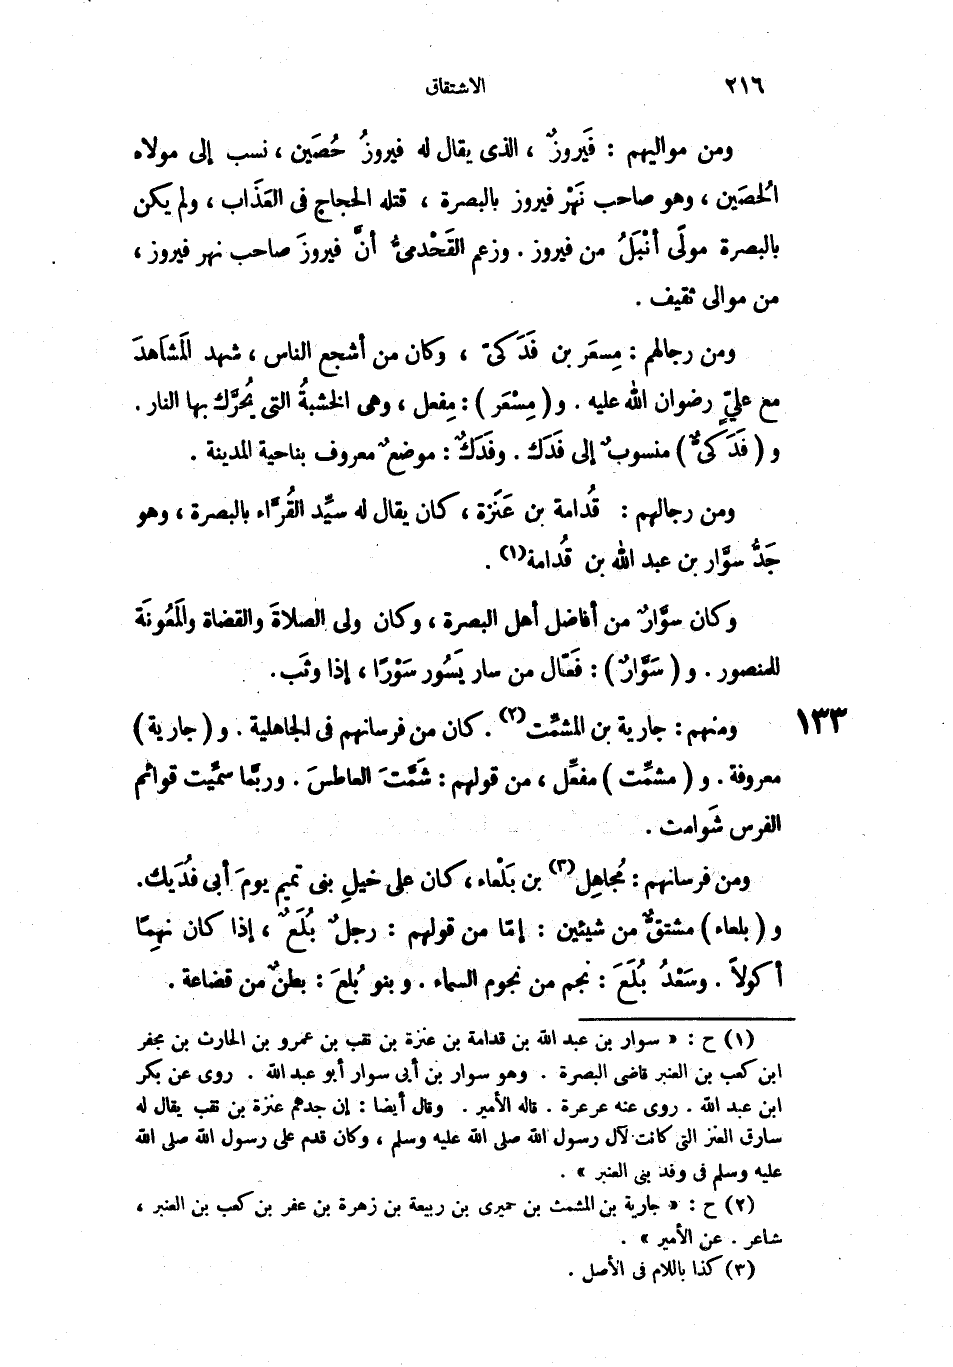 ٢١٦
الاشتقاق
ومن مواليهم : فَيروزٌ ، الذى يقال له فيروزُ حُصَين ، نسب إلى مولاه
الُحصَين ، وهو صاحب نَهْر فيروز بالبصرة ، قتله الحجاج فى العَذَاب ، ولم يكن
بالبصرة مولًى أنْبَلُ من فيروز . وزعم القَحْذمىُّ أنَّ فيروزَ صاحب نهر فيروز ،
من موالى ثقيف .
ومن رجالهم : مِسعَر بن فَدَكىّ ، وكان من أشجع الناس ، شهد الَمشاهدَ
مع علىٍّ رضوان الله عليه . و ( مِسْعَر ) : مِفعل ، وهى الخشبةُ التى يُحرَّك بها النار .
و ( فَدَكىٌّ ) منسوبٌ إلى فَدَك . وفَدَكٌ : موضعٌ معروف بناحية المدينة .
ومن رجالهم : قُدامة بن عَنَزة ، كان يقال له سيِّد القُرَّاء بالبصرة ، وهو
جَدُّ سوَّار بن عبد الله بن قُدامة(١) .
وكان سوَّارٌ من أفاضل أهل البصرة ، وكان ولى الصلاةَ والقضاة والَمعُونَة
للمنصور . و ( سَوَّارٌ ) : فَعّال من سار يَسُور سَوْرًا ، إذا وثَب .
١٣٣
ومنهم : جارية بن المشمِّت(٢) . كان من فرسانهم فى الجاهلية . و ( جارية )
معروفة . و ( مشمِّت ) مفعِّل ، من قولهم : شَمَّتَ العاطسَ . وربَّما سمِّيت قوائم
الفرس شَوامت .
ومن فرسانهم : مُجاهِل(٣) بن بَلْعاء ، كان على خيلِ بنى تميم يومَ أبى فُدَيك .
و ( بلعاء ) مشتقٌّ من شيئين : إمّا من قولهم : رجلٌ بُلَعٌ ، إذا كان نهِمًا
أكولاً . وسَعْدُ بُلَعَ : نجم من نجوم السماء . وبنو بُلعَ : بطنٌ من قضاعة .
(١) ح : « سوار بن عبد الله بن قدامة بن عنزة بن نقب بن عمرو بن الحارث بن مجفر
ابن كعب بن العنبر قاضى البصرة . وهو سوار بن أبى سوار أبو عبد الله . روى عن بكر
ابن عبد الله . روى عنه عرعرة . قاله الأمير . وقال أيضا : إن جدهم عنزة بن نقب يقال له
سارق العنز التى كانت لآل رسول الله صلى الله عليه وسلم ، وكان قدم على رسول الله صلى الله
عليه وسلم فى وفد بنى العنبر » .
(٢) ح : « جارية بن المشمث بن حميرى بن ربيعة بن زهرة بن عفر بن كعب بن العنبر ،
شاعر . عن الأمير » .
(٣) كذا باللام فى الأصل .